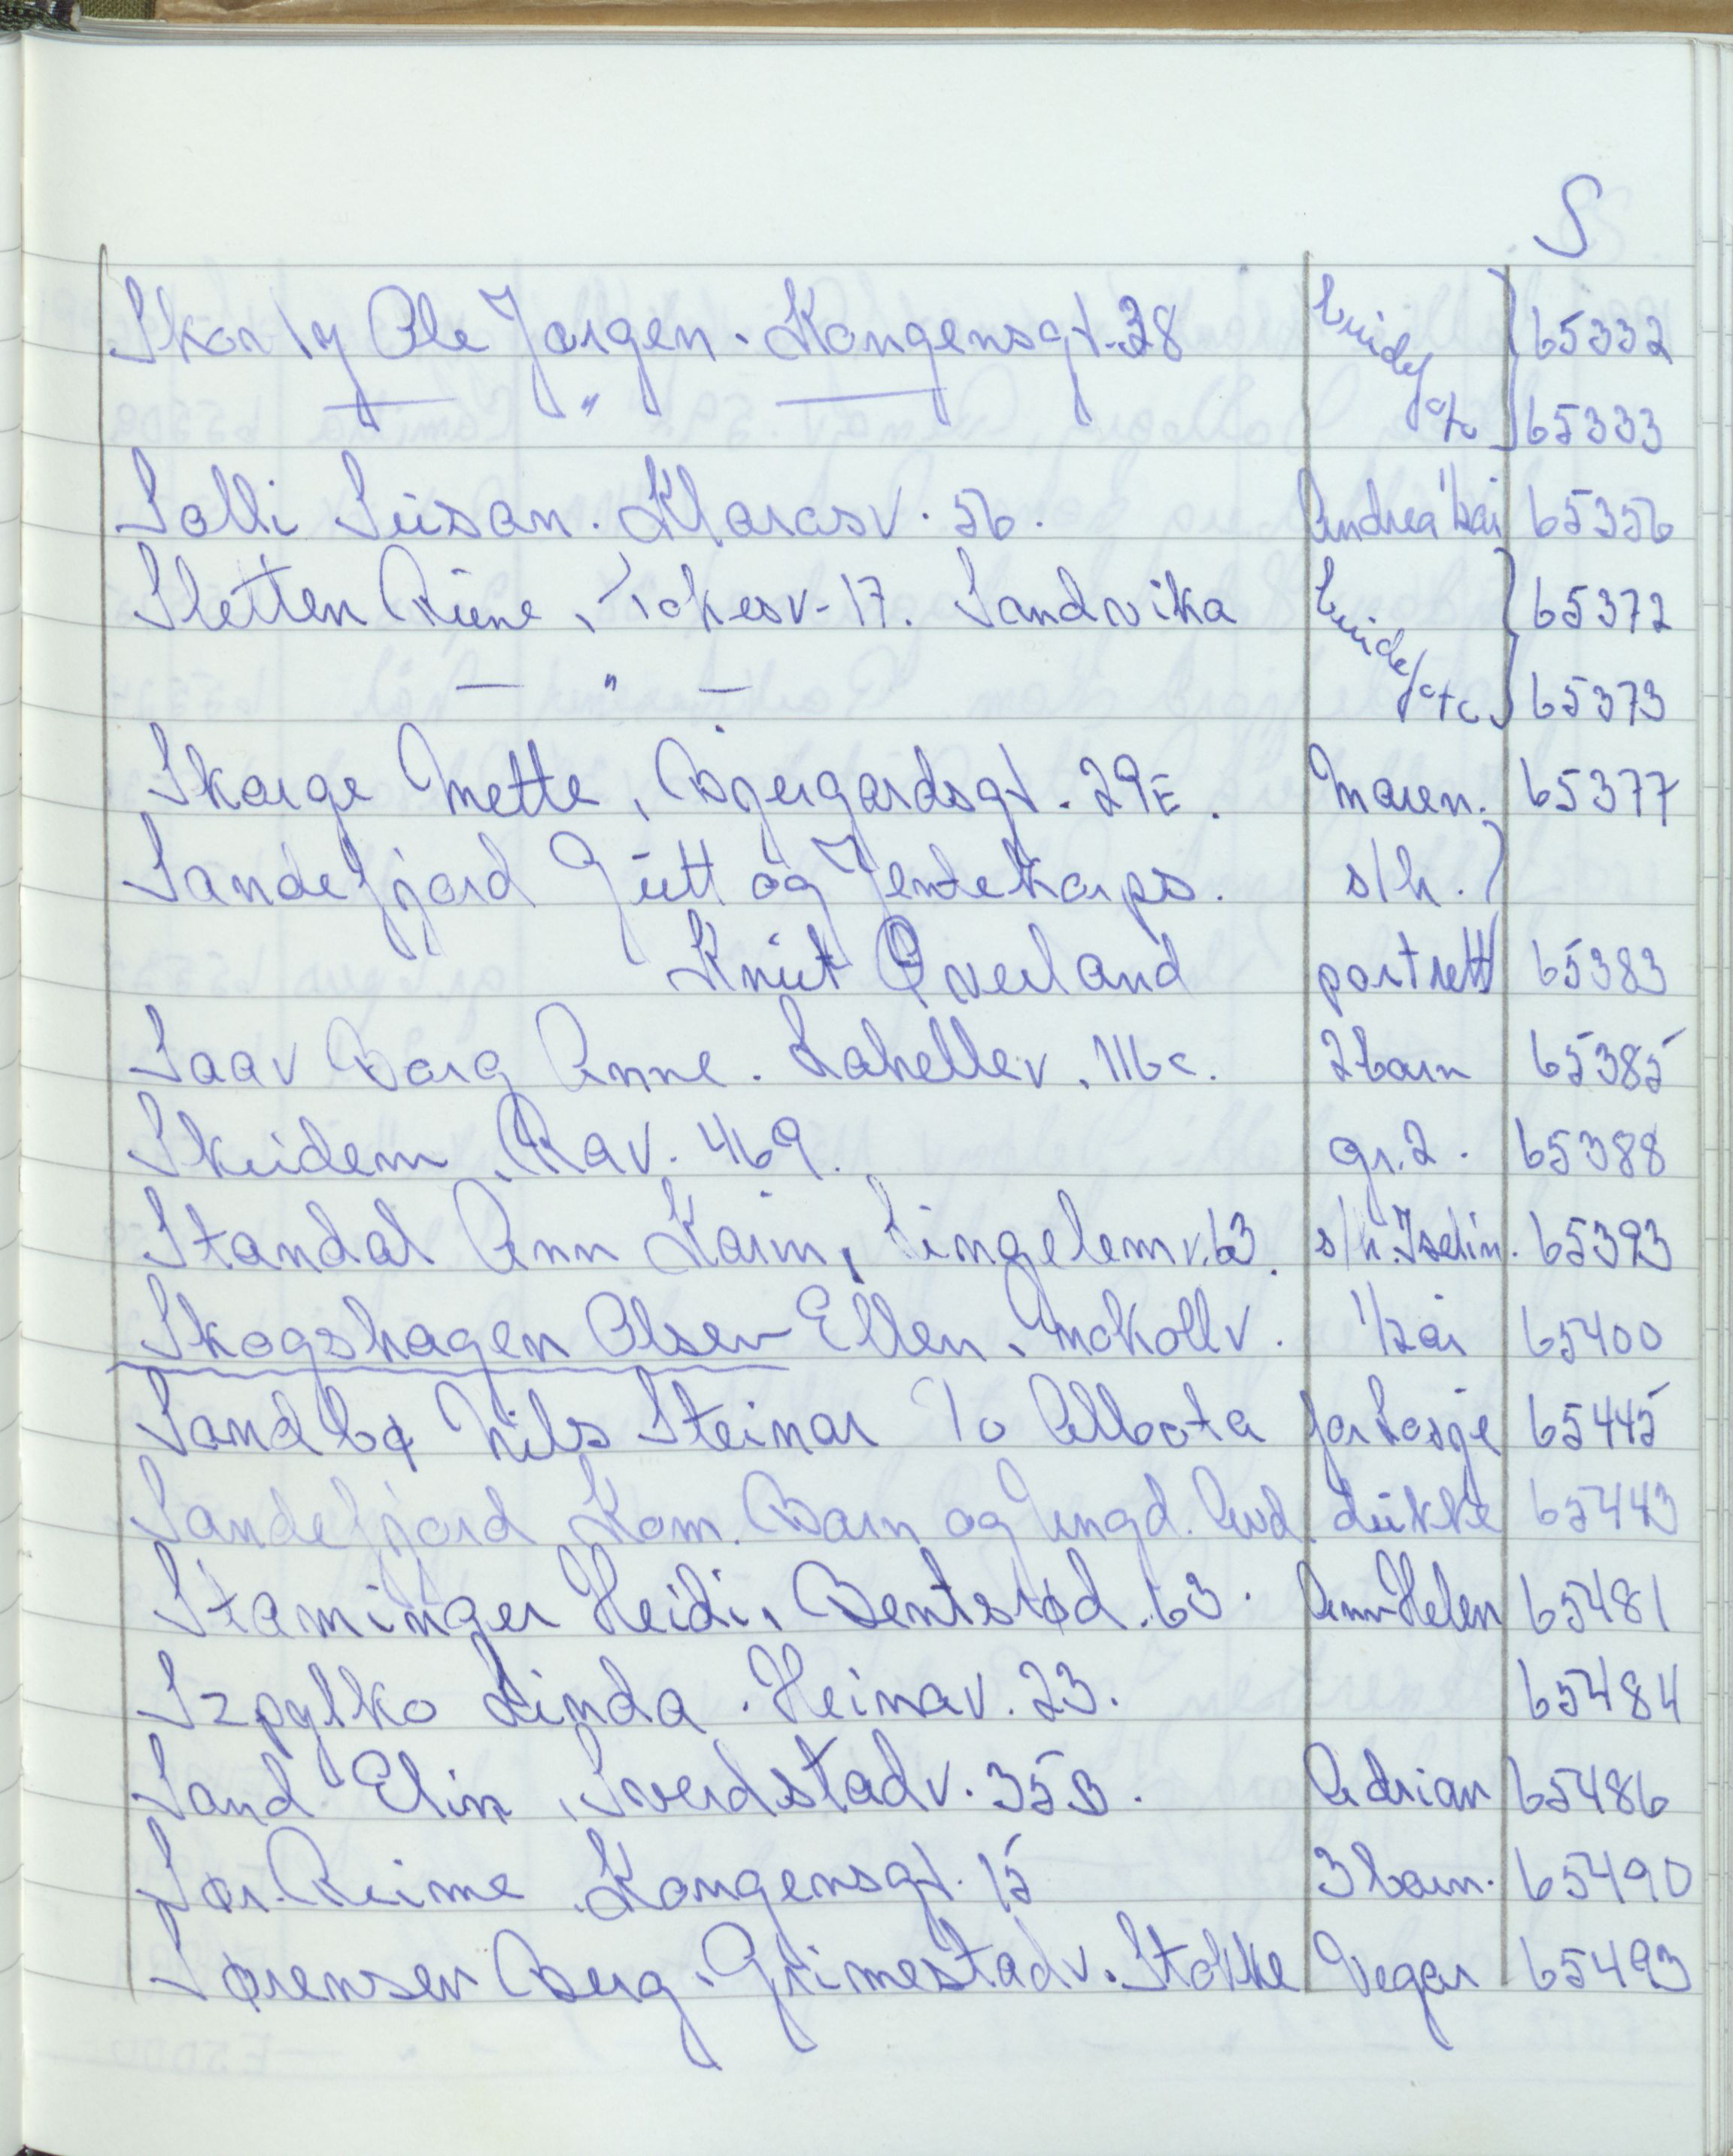 S
Skarly Ole Jørgen. Kongensgt. 38 brude/ 65332
— " — etc 65333
Solli Susan. Klaråsv. 56. Andrea 1/2 år 65356
Sletten Rune, Tokesv. 17. Sandvika brude/ 65372
— " — etc 65373
Skarge Mette, Bjergårdsgt. 29E. Maren. 65377
Sandefjord Gutt og Jentekorps. s/h.
Knut Øverland portrett 65383
Saav Borg Anne. Lahellev. 116c. 2 barn 65385
Skeidem, Rav. 469. gr. 2. 65388
Standal Ann Karin, Lingelemv. 63. s/h. Iselin. 65393
Skogshagen Olsen Ellen, Mokollv. 1/2 år 65400
Sandbø Nils Steinar To Albota 65445
Sandefjord Kom. Barn og Ungd. Avd. dukke 65443
Staminger Heidi, Bentsrød. 63. Ann Helen 65481
Szpytko Linda. Heimav. 23. 65484
Sand Elin, Sverdstadv. 35B. Adrian 65486
Sør-Reime Kongensgt. 15 3 barn. 65490
Sørensen Berg. Grimestadv. Stokke Vegar 65493